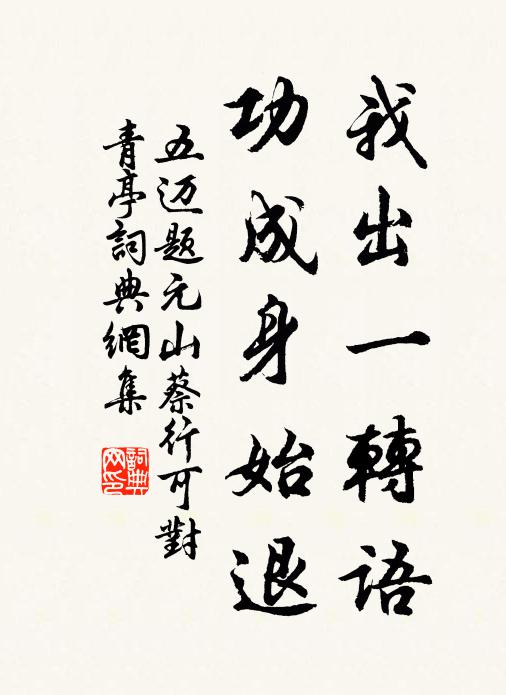 我出一轉語
功成身始退
五迈题元山蔡行可對
青亭詞典網集
詞典
网印